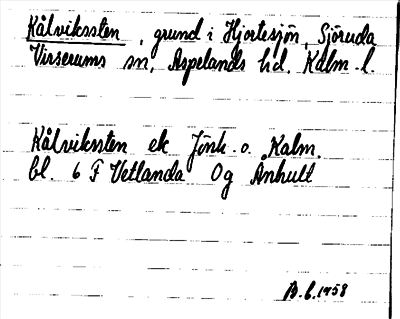 Kålvikssten, grund i Hjortesjön, Sjöruda
Virserums sn, Aspelands hd. Kalm. l.
Kålvikssten ek Jönk. o. Kalm.
bl. 6 F Vetlanda Og Ånhult
B.E. 1958